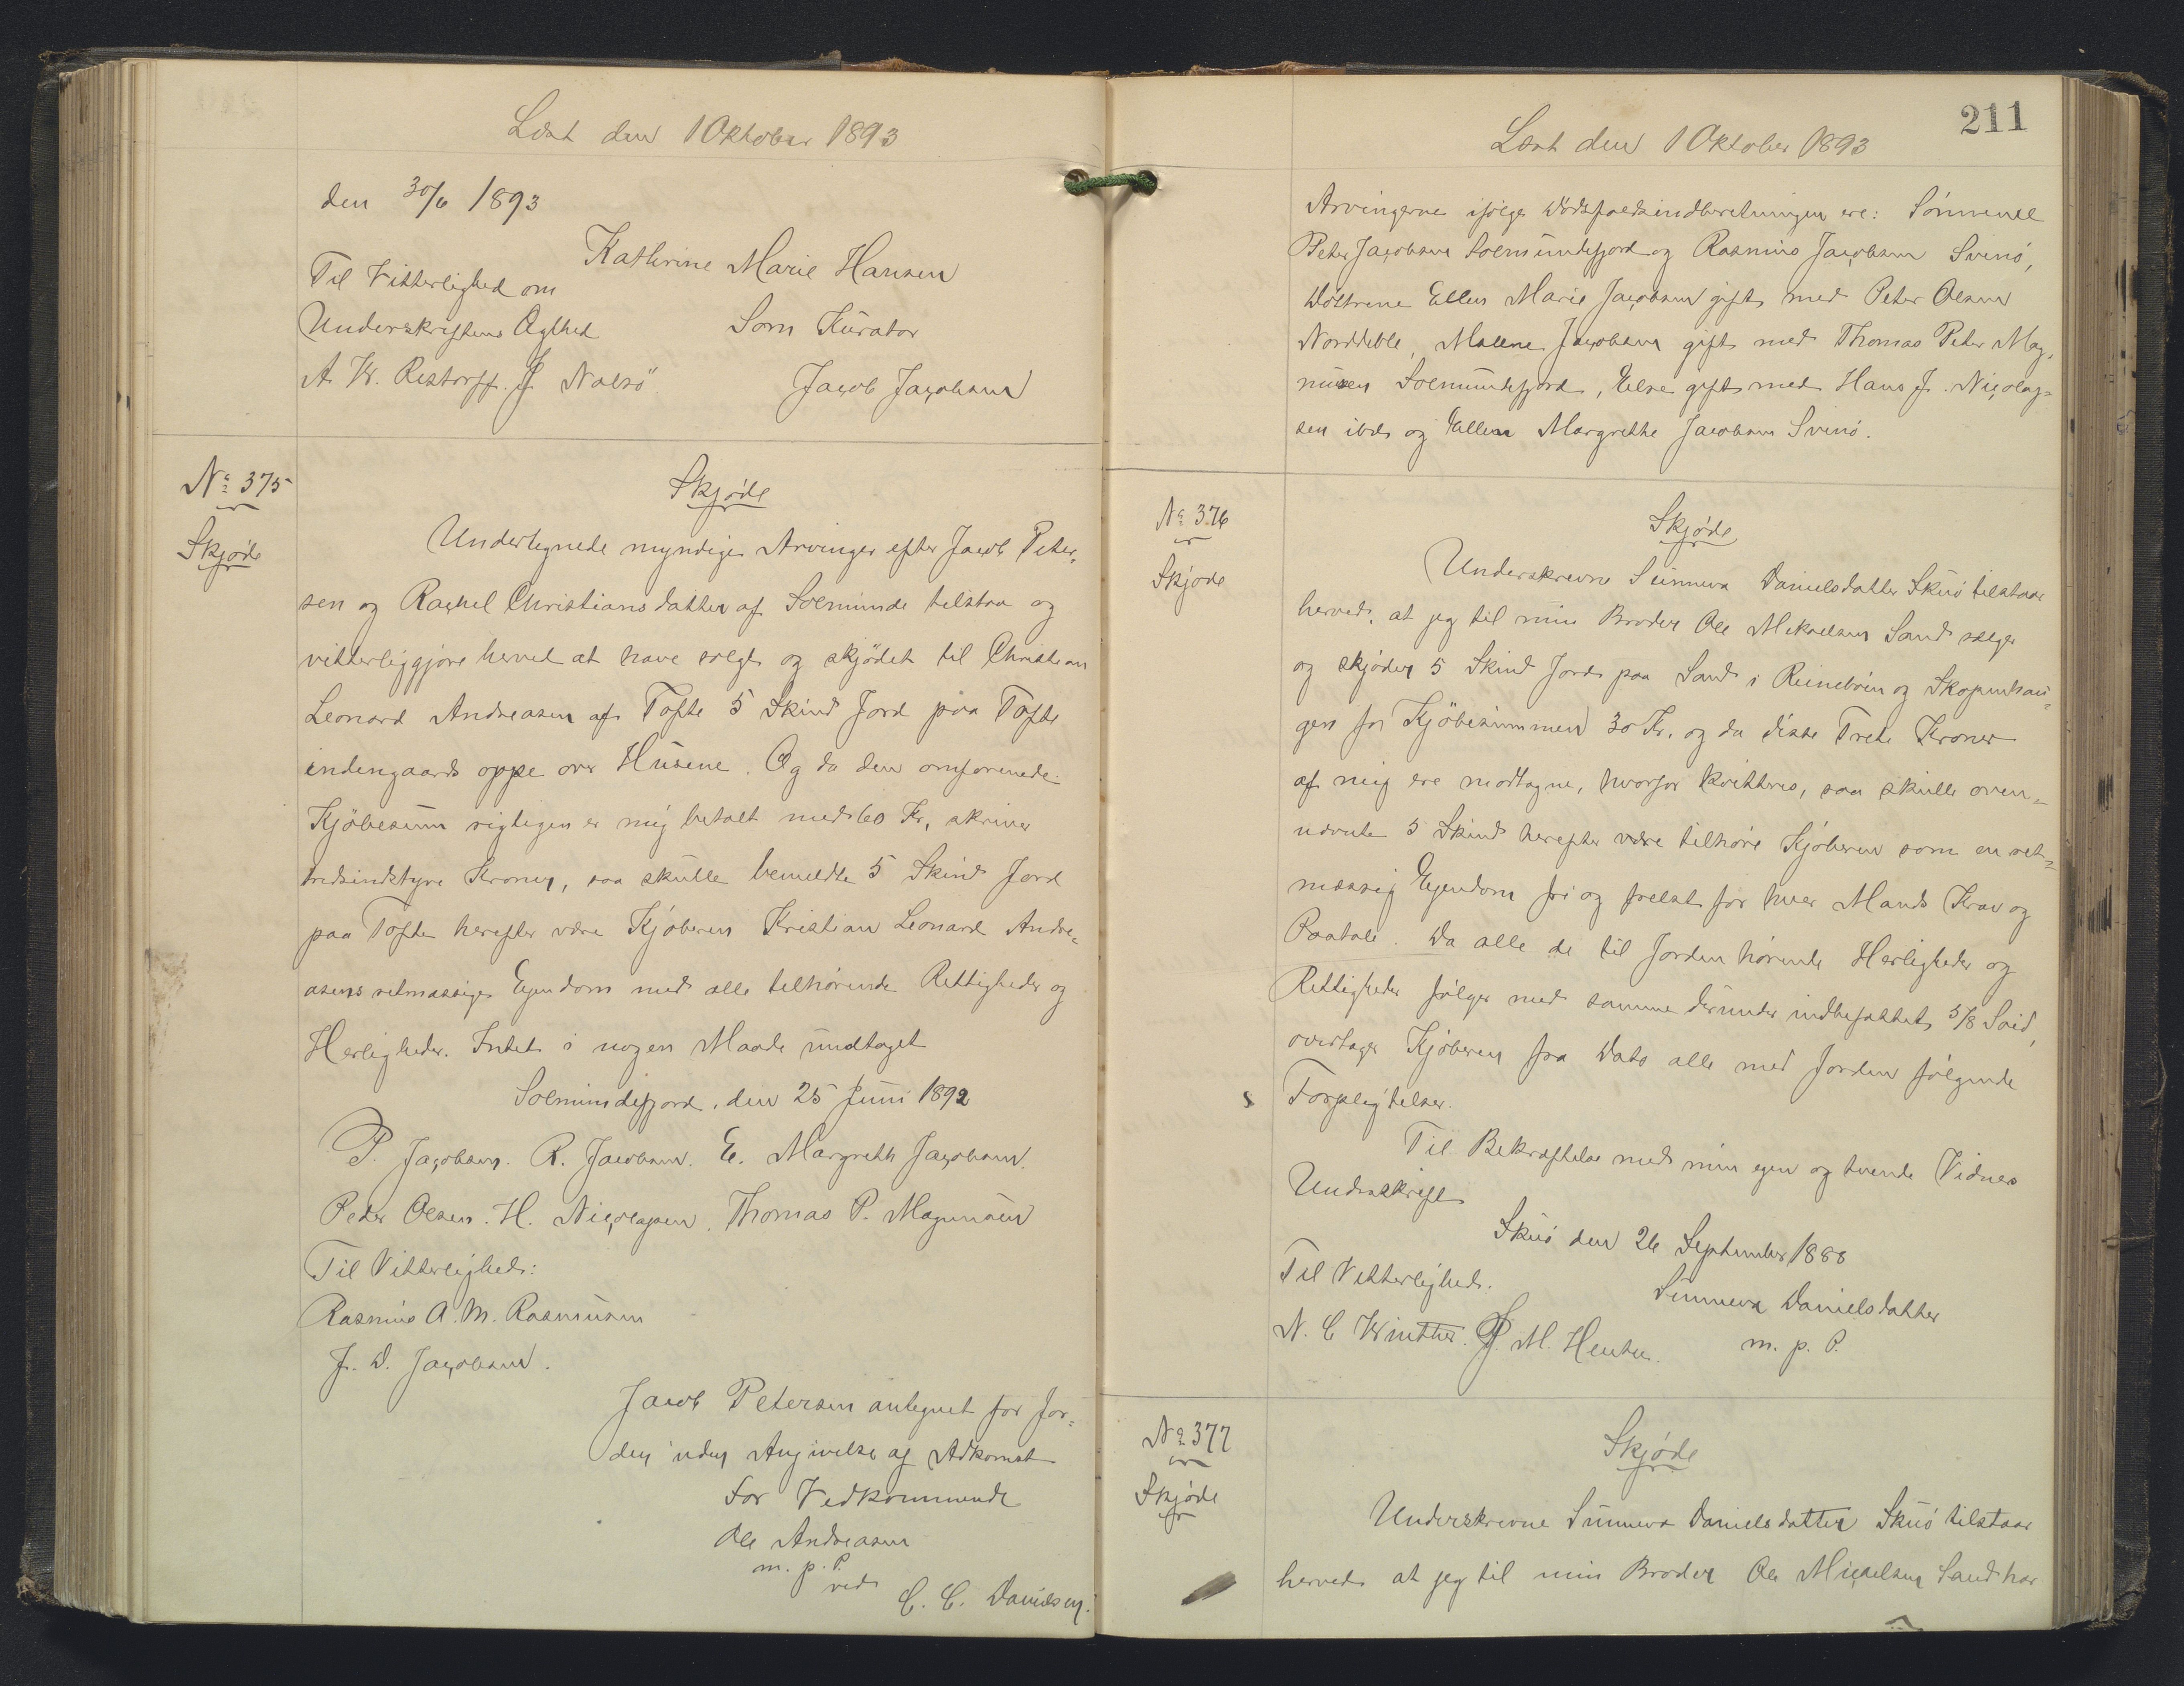 Læst den 1 Oktober 1893
den 30/6 1893
Kathrine Marie Hansen
Til Vitterlighed om
Underskriftens Ægthed
Som Kurator
A. W. Restorff. J. Nolsö
Jacob Jacobsen
No 375
Skjøde
Skjøde
Undertegnede myndige Arvinger efter Jacob Peter-
sen og Rachel Christiansdatter af Solmunde tilstaa og
vitterliggjøre herved at have solgt og skjødet til Christian
Leonard Andreasen af Tofte 5 Skind Jord paa Tofte
indengaards oppe over Husene. Og da den omforenede
Kjøbesum rigtigen er mig betalt med 60 Kr, skriver
tredsindstyve Kroner, saa skulle bemeldte 5 Skind Jord
paa Tofte herefter være Kjøberen Kristian Leonard Andre-
asens retmæssige Ejendom med alle tilhørende Rettigheder og
Herligheder. Intet i nogen Maade undtaget
Solmundefjord, den 25 Juni 1892
P. Jacobsen. R. Jacobsen. E. Margreth Jacobsen.
Peder Olsen. H. Nicolajsen. Thomas P. Magnusen
Til Vitterlighed:
Rasmus A. M. Rasmusen
J. D. Jacobsen.
Jacob Petersen antegnet for Jor-
den uden Angivelse af Adkomst
For Vedkommende
Ole Andreasen
m. p. P.
ved
C. C. Danielsen.
211
Læst den 1 Oktober 1893
Arvingerne ifølge Dødsfaldsindberetningen ere: Sønnerne
Peter Jacobsen Solmundefjord og Rasmus Jacobsen Svinø,
Døttrene Ellen Marie Jacobsen gift med Peter Olsen
Norddeble, Malene Jacobsen gift med Thomas Peter Mag-
nusen Solmundefjord, Else gift med Hans J. Nicolaj-
sen ibd. og Ellen Margrethe Jacobsen Svinø.
No 376
Skjøde
Skjøde
Underskrevne Sunneva Danielsdatter Skuø tilstaar
herved, at jeg til min Broder Ole Mikaelsen Sand sælger
og skjøder 5 Skind Jord paa Sand i Reinebøin og Skopunhau-
gen for Kjøbesummen 30 Kr. og da disse Trete Kroner
af mig ere modtagne, hvorfor kvitteres, saa skulle oven-
nævnte 5 Skind herefter være tilhøre Kjøberen som en ret-
mæssig Ejendom fri og frelst for hver Mands Krav og
Paatale. Da alle de til Jorden hørende Herligheder og
Rettigheder følger med samme derunder indbefattet 5/8 Soid,
overtager Kjøberen fra Dato alle med Jorden følgende
Forpligtelser.
Til Bekræftelse med min egen og tvende Vidners
Underskrift
Skuø den 26 September 1888
Til Vitterlighed.
Sunneva Danielsdatter
N. C Winther. J. M. Hentze.
m. p. P.
No 377
Skjøde
Skjøde
Underskrevne Sunneva Danielsdatter Skuø tilstaar
herved at jeg til min Broder Ole Micaelsen Sand har